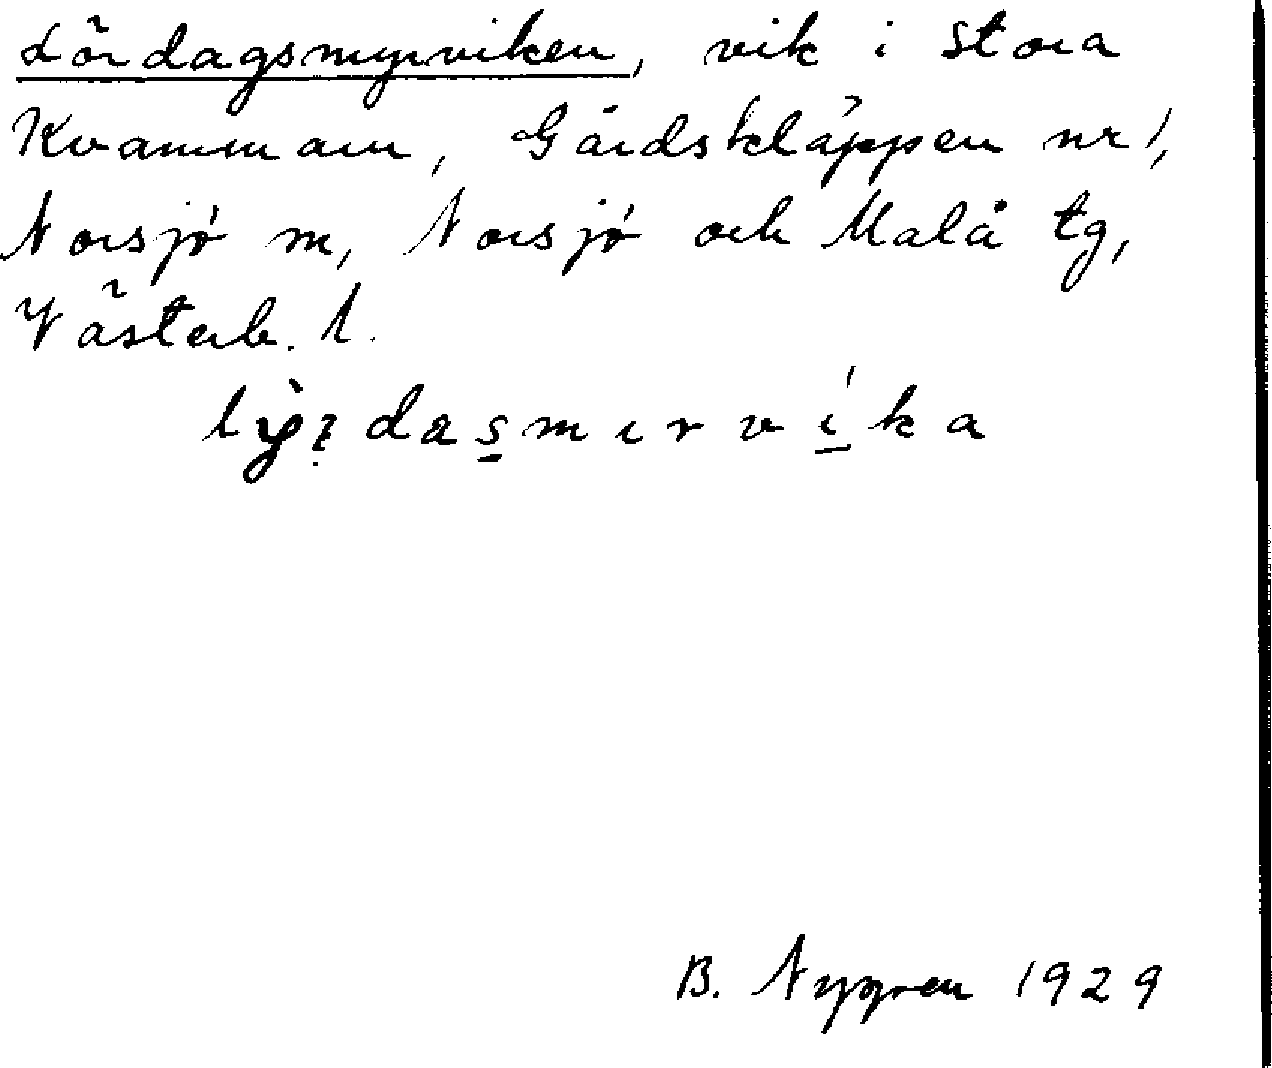 Lördagsmyrviken, vik i Stora
Kvammarn, Gårdskläppen nr 1,
Norsjö sn, Norsjö och Malå tg,
Västerb. l.
B. Nygren 1929